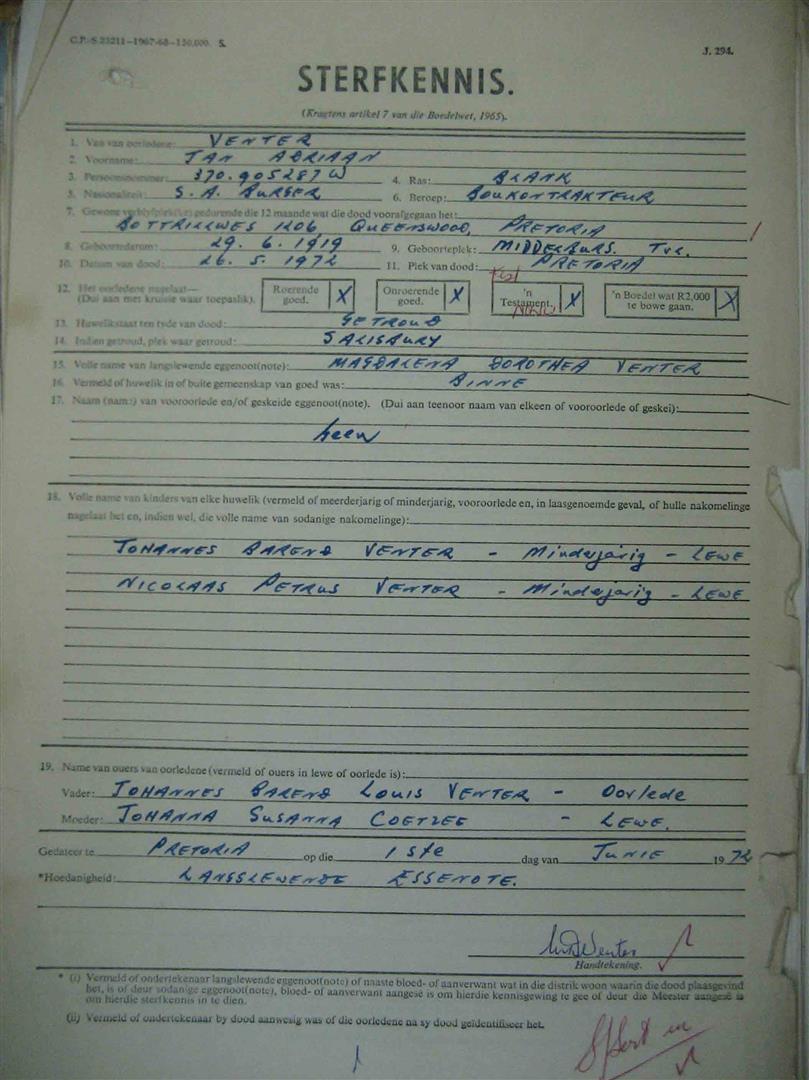 C.P.-S.23211—1967-68—150,000. S.
J. 294.
STERFKENNIS.
(Kragtens artikel 7 van die Boedelwet, 1965).
1. Van van oorledene: VENTER
2. Voorname: JAN ADRIAAN
3. Persoonsnommer: 370.905287W 4. Ras: BLANK
5. Nasionaliteit: S.A. BURGER 6. Beroep: BOUKONTRAKTEUR
7. Gewone verblyfplek(ke) gedurende die 12 maande wat die dood voorafgegaan het:
BOTTRILLWEG 1206 QUEENSWOOD, PRETORIA
8. Geboortedatum: 29.6.1919 9. Geboorteplek: MIDDELBURG. TVL.
10. Datum van dood: 26.5.1972 11. Plek van dood: PRETORIA
12. Het oorledene nagelaat— (Dui aan met kruisie waar toepaslik). Roerende goed. X Onroerende goed. X 'n Testament. X 'n Boedel wat R2,000 te bowe gaan. X
13. Huwelikstaat ten tyde van dood: GETROUD
14. Indien getroud, plek waar getroud: SALISBURY
15. Volle name van langslewende eggenoot(note): MAGDALENA DOROTHEA VENTER
16. Vermeld of huwelik in of buite gemeenskap van goed was: BINNE
17. Naam (name) van vooroorlede en/of geskeide eggenoot(note). (Dui aan teenoor naam van elkeen of vooroorlede of geskei):
Geen
18. Volle name van kinders van elke huwelik (vermeld of meerderjarig of minderjarig, vooroorlede en, in laasgenoemde geval, of hulle nakomelinge
nagelaat het en, indien wel, die volle name van sodanige nakomelinge):
JOHANNES BAREND VENTER - Minderjarig - LEWE
NICOLAAS PETRUS VENTER - Minderjarig - LEWE
19. Name van ouers van oorledene (vermeld of ouers in lewe of oorlede is):
Vader: JOHANNES BAREND LOUIS VENTER - Oorlede
Moeder: JOHANNA SUSANNA COETZEE - LEWE.
Gedateer te PRETORIA op die 1 ste dag van JUNIE 1972
*Hoedanigheid: LANGSLEWENDE EGGENOTE.
MDVenter
Handtekening.
* (i) Vermeld of ondertekenaar langslewende eggenoot(note) of naaste bloed- of aanverwant wat in die distrik woon waarin die dood plaasgevind
het, is of deur sodanige eggenoot(note), bloed- of aanverwant aangesê is om hierdie kennisgewing te gee of deur die Meester aangesê is
om hierdie sterfkennis in te dien.
(ii) Vermeld of ondertekenaar by dood aanwesig was of die oorledene na sy dood geïdentifiseer het.